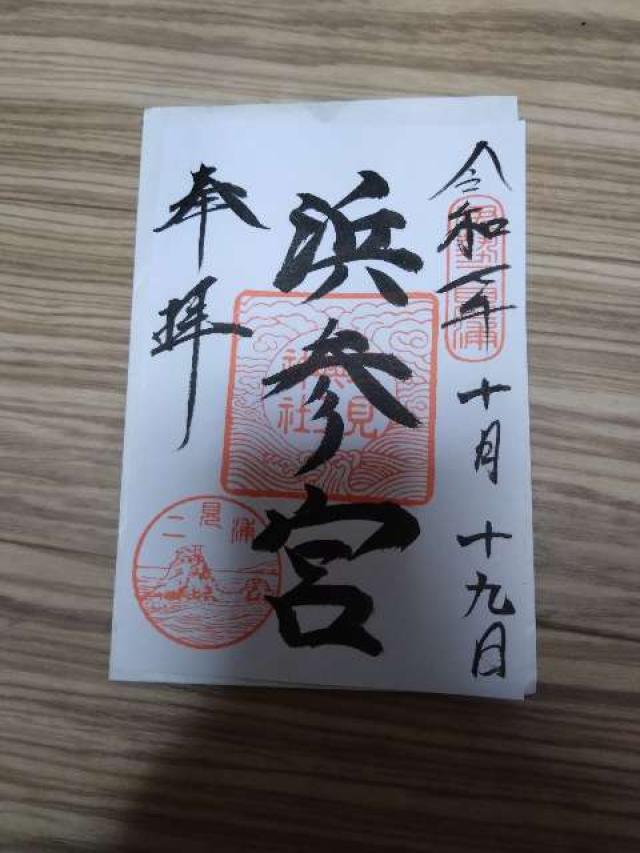 令和七年
十月十九日
伊勢二見浦
浜参宮
二見
興玉
神社
奉拝
二見浦